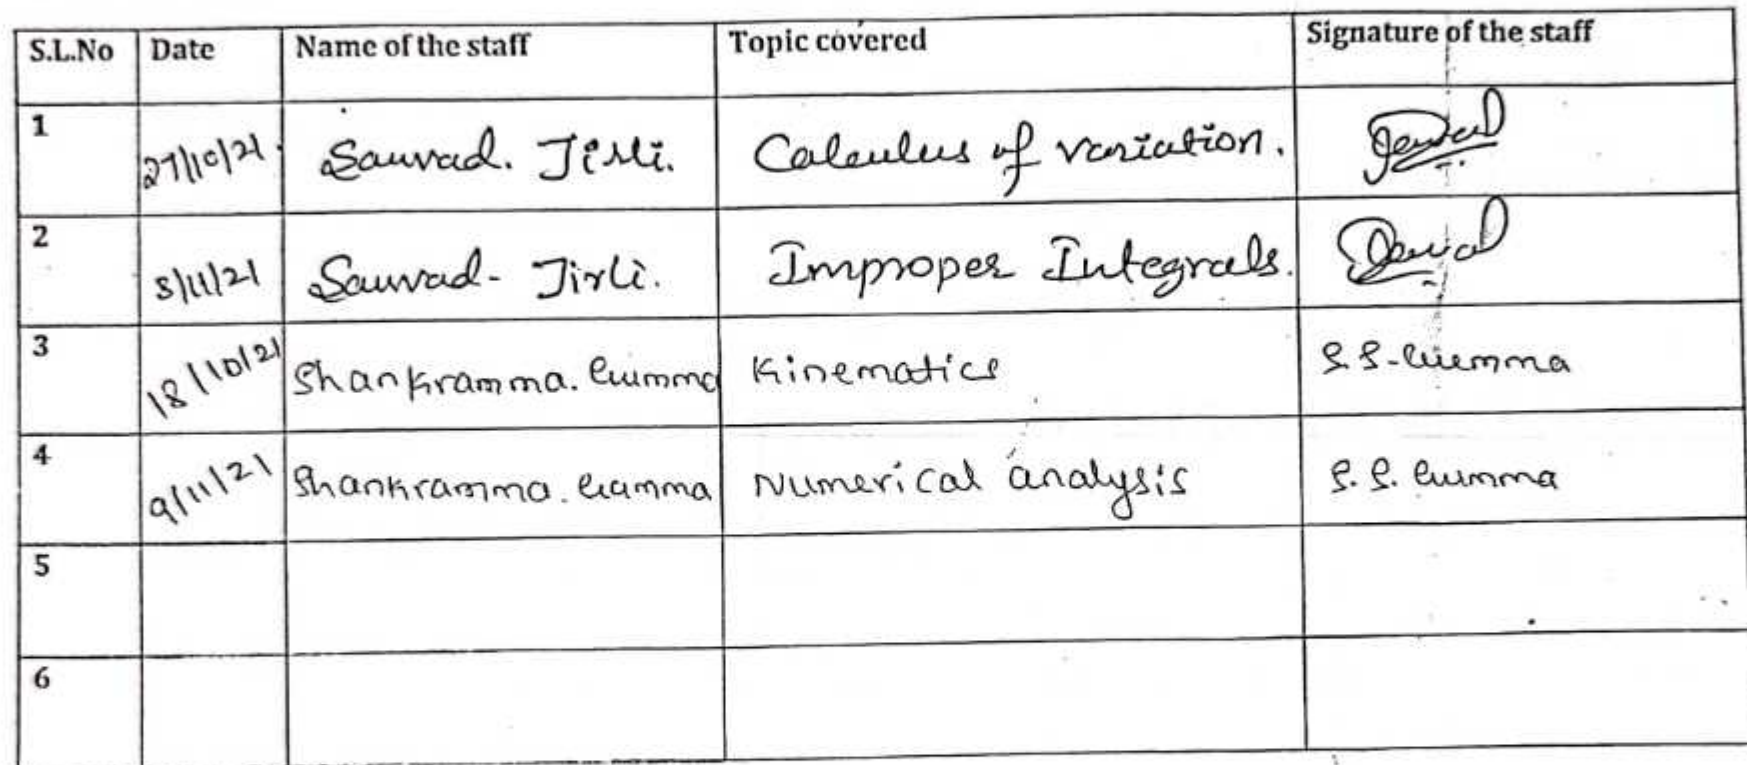 S.L.No Date Name of the staff Topic covered Signature of the staff
1 27/10/21 Sauvad. Jirli. Calculus of variation.
2 /11/21 Sauvad- Jirli. Improper Integrals.
3 18/10/21 Shankramma. Kinematics S.S-
4 9/11/21 Shankramma. Numerical analysis S.S.
5
6